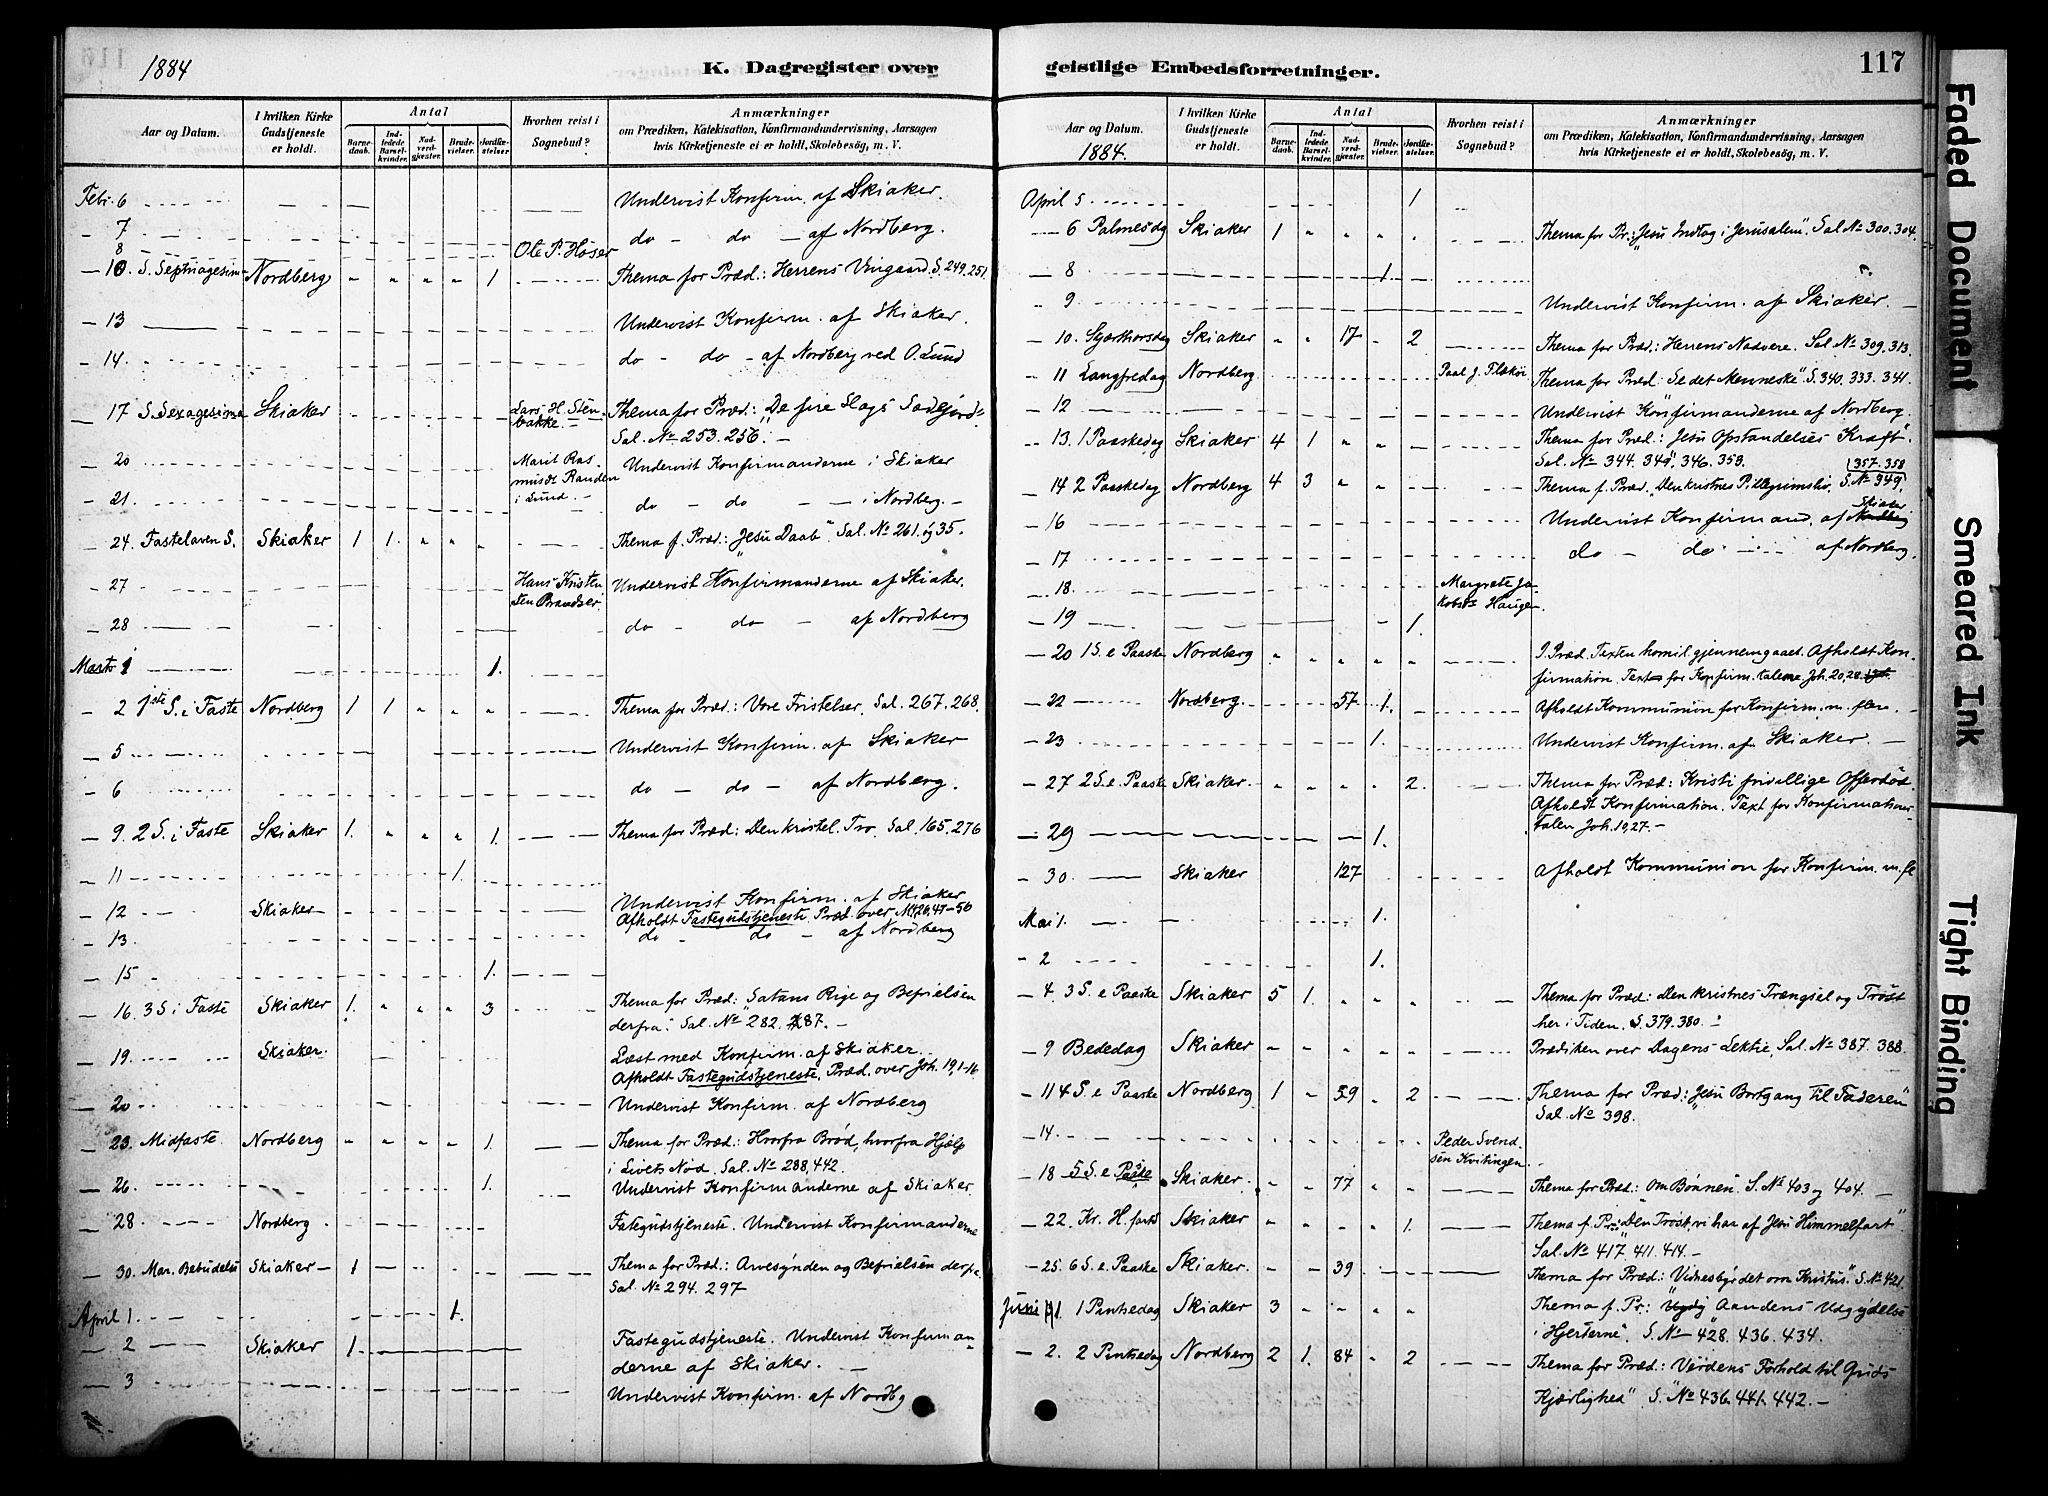 1884
K. Dagregister over
Aar og Datum.
I hvilken Kirke Gudstjeneste er holdt.
Antal
Barnedaab.
Indledede Barselkvinder.
Nadverdgjester.
Brudevielser.
Jordfæstelser.
Hvorhen reist i Sognebud?
Anmærkninger
om Prædiken, Katekisation, Konfirmandundervisning, Aarsagen
hvis Kirketjeneste ei er holdt, Skolebesög, m. V.
Febr. 6 Undervist Konfirm. af Skiaker.
- 7 do - do - af Nordberg.
8 Ole P. Høser
- 10 S. Septuagesim Nordberg " " " " 1 Thema for Præd.: Herrens Vingaard. S. 249. 251.
- 13 Undervist Konfirm. af Skiaker.
- 14. do - do - af Nordberg ved O. Lund
- 17 S. Sexagesima Skiaker Lars H. Sten- Thema for Præd.: "De fire Slags Sædejord"
bakke. Sal. No 253. 256. -
- 20 Marit Ras- Undervist Konfirmanderne i Skiaker
musdr Randen
- 21. i Lund. - do - do - i Nordberg. -
- 24. Fastelaven S. Skiaker 1 1. " " " Thema f. Præd.: "Jesu Daab". Sal. No 261. og 35.
- 27 Hans Kristen- Undervist Konfirmanderne af Skiaker.
sen Brandser
- 28 do - do - af Nordberg
Marts 1 1.
- 2 1ste S. i Faste Nordberg 1 1 " " " Thema for Præd.: Vore Fristelser, Sal. 267. 268.
- 5 Undervist Konfirm. af Skiaker
- 6 do - do - af Nordberg.
- 9. 2 S. i Faste Skiaker 1. " " " 1. Thema for Præd.: Den kristel. Tro. Sal. 165. 276
- 11 1.
- 12 Skiaker Undervist Konfirm. af Skiaker
Afholdt Fastegudstjeneste. Præd. over Mt 26,47-56
- 13 do - do - af Nordberg
- 15 1.
- 16. 3 S. i Faste Skiaker 1. " " " 3 Thema for Præd.: Satans Rige og Befrielsen
derfra". Sal. No 282. 287. -
- 19. Skiaker. Læst med Konfirm. af Skiaker.
Afholdt Fastegudstjeneste. Præd. over Joh. 19,1-16
- 20 Undervist Konfirm. af Nordberg
- 23. Midfaste. Nordberg " " " " 1. Thema for Præd.: Hvorfra Brød, hvorfra Hjælp
i Livets Nød. Sal. No 288, 442.
- 26. 1. Undervist Konfirmanderne af Skiaker
- 28 Nordberg Fastegudstjeneste. Undervist Konfirmanderne
- 30. Mar. Bebudelse Skiaker 1 Thema for Præd.: Arvesynden og Befrielsen derfra.
Sal. No 294. 297
April 1. 1.
- 2 Skiaker 1. Fastegudstjeneste. Undervist Konfirman-
derne af Skiaker. -
- 3 Undervist Konfirm. af Nordbg
geistlige Embedsforretninger.
117
Aar og Datum.
1884.
I hvilken Kirke Gudstjeneste er holdt.
Antal
Barnedaab.
Indledede Barselkvinder.
Nadverdgjester.
Brudevielser.
Jordfæstelser.
Hvorhen reist i Sognebud?
Anmærkninger
om Prædiken, Katekisation, Konfirmandundervisning, Aarsagen
hvis Kirketjeneste ei er holdt, Skolebesög, m. V.
April 5 1
- 6 Palmesdag Skiaker 1 " " " " Thema for Pr.: Jesu Indtog i Jerusalem". Sal No 300. 304.
- 8 1.
- 9 Undervist Konfirm. af Skiaker.
- 10. Skjærthorsdag Skiaker " " 17 " 2 Thema for Præd.: Herrens Nadvere. Sal. No 309. 313.
- 11 Langfredag Nordberg Paal J. Flækøi Thema for Præd: Se det Menneske". S. 340. 333. 341.
- 12 Undervist Konfirmanderne af Nordberg.
- 13. 1 Paaskedag Skiaker 4 1 " " Thema for Præd.: Jesu Opstandelses Kraft".
Sal. No 344. 349. 346. 353.
- 14 2 Paaskedag Nordberg 4 3 " " Thema f. Præd. Den kristnes Pillegrimsliv. S. No 349. 357. 358
- 16 Undervist Konfirmand. af Nordberg Skiaker
- 17 do - do - af Nordberg.
- 18. Margrete Ja-
kobsdr Haugen.
- 19 1.
- 20 1 S. e Paaske Nordberg " " " " " I Præd. Texten homil. gjennemgaaet. Afholdt Kon-
firmation. Text for Konfirm. talene Joh. 20,28.
- 22 Nordberg. 57 1. Afholdt Kommunion for Konfirm. m. flere. -
- 23 1. Undervist Konfirm. af Skiaker. -
- 27 2 S. e. Paaske Skiaker. " " " " 2. Thema for Præd: Kristi frivillige Offerdød.
Afholdt Konfirmation. Text for Konfirmations-
- 29 1. talen Joh. 10,27. -
- 30. Skiaker 127 Afholdt Kommunion for Konfirm. m. fl
Mai 1. 1.
- 2 1.
- 4. 3 S. e Paaske Skiaker 5 1. " " " Thema for Præd: Den kristnes Trængsel og Trøst
her i Tiden. S. 379. 380. -
- 9 Bededag Skiaker " " " " " Prædiken over Dagens Lektie, Sal. No 387. 388.
- 11 4 S. e Paaske Nordberg 1 " 59 " 2 Thema for Præd: "Jesu Bortgang til Faderen"
Sal. No 398.
- 14. Peder Svend-
sen Kvitingen.
- 18 5 S. e Paaske Skiaker. " " 77 " " Thema for Præd: "Om Bønnen". S. No 403 og 404. -
- 22. Kr. H. farts Skiaker " " " " 1. Thema f. Pr: "Den Trøst, vi har af Jesu Himmelfart"
Sal. No 417. 411. 414. -
- 25. 6 S. e. Paaske Skiaker. 39 Thema for Præd.: Vidnesbyrdet om Kristus". S. No 421.
Juni 1 1 Pintsedag Skiaker 3 " " " Thema f. Pr: Aandens Udgydelse
i Hjerterne". S. No 428. 436. 434.
- 2. 2 Pintsedag Nordberg 2 1. 84 " 2 Thema for Præd.: Verdens Forhold til Guds
Kjærlighed" S. No 436. 441. 442. -
Faded Document
Smeared Ink
Tight Binding